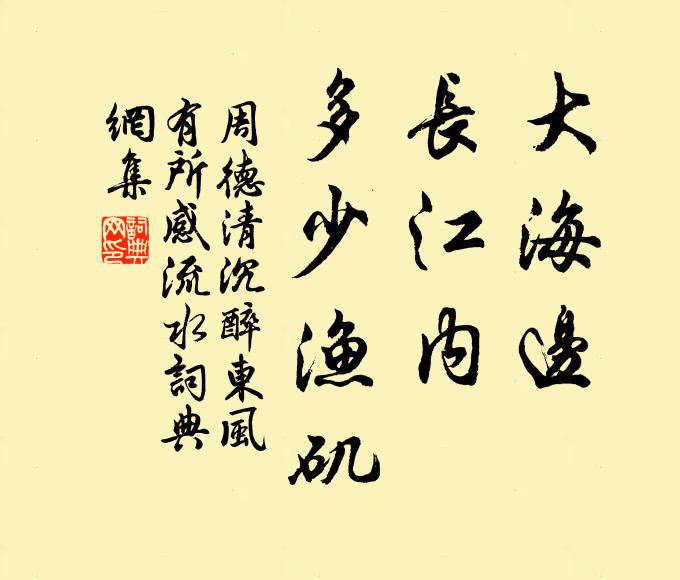 大海邊
長江内
多少漁矶
周德清沉醉東風
有所感流水詞典
網集
詞典
网印